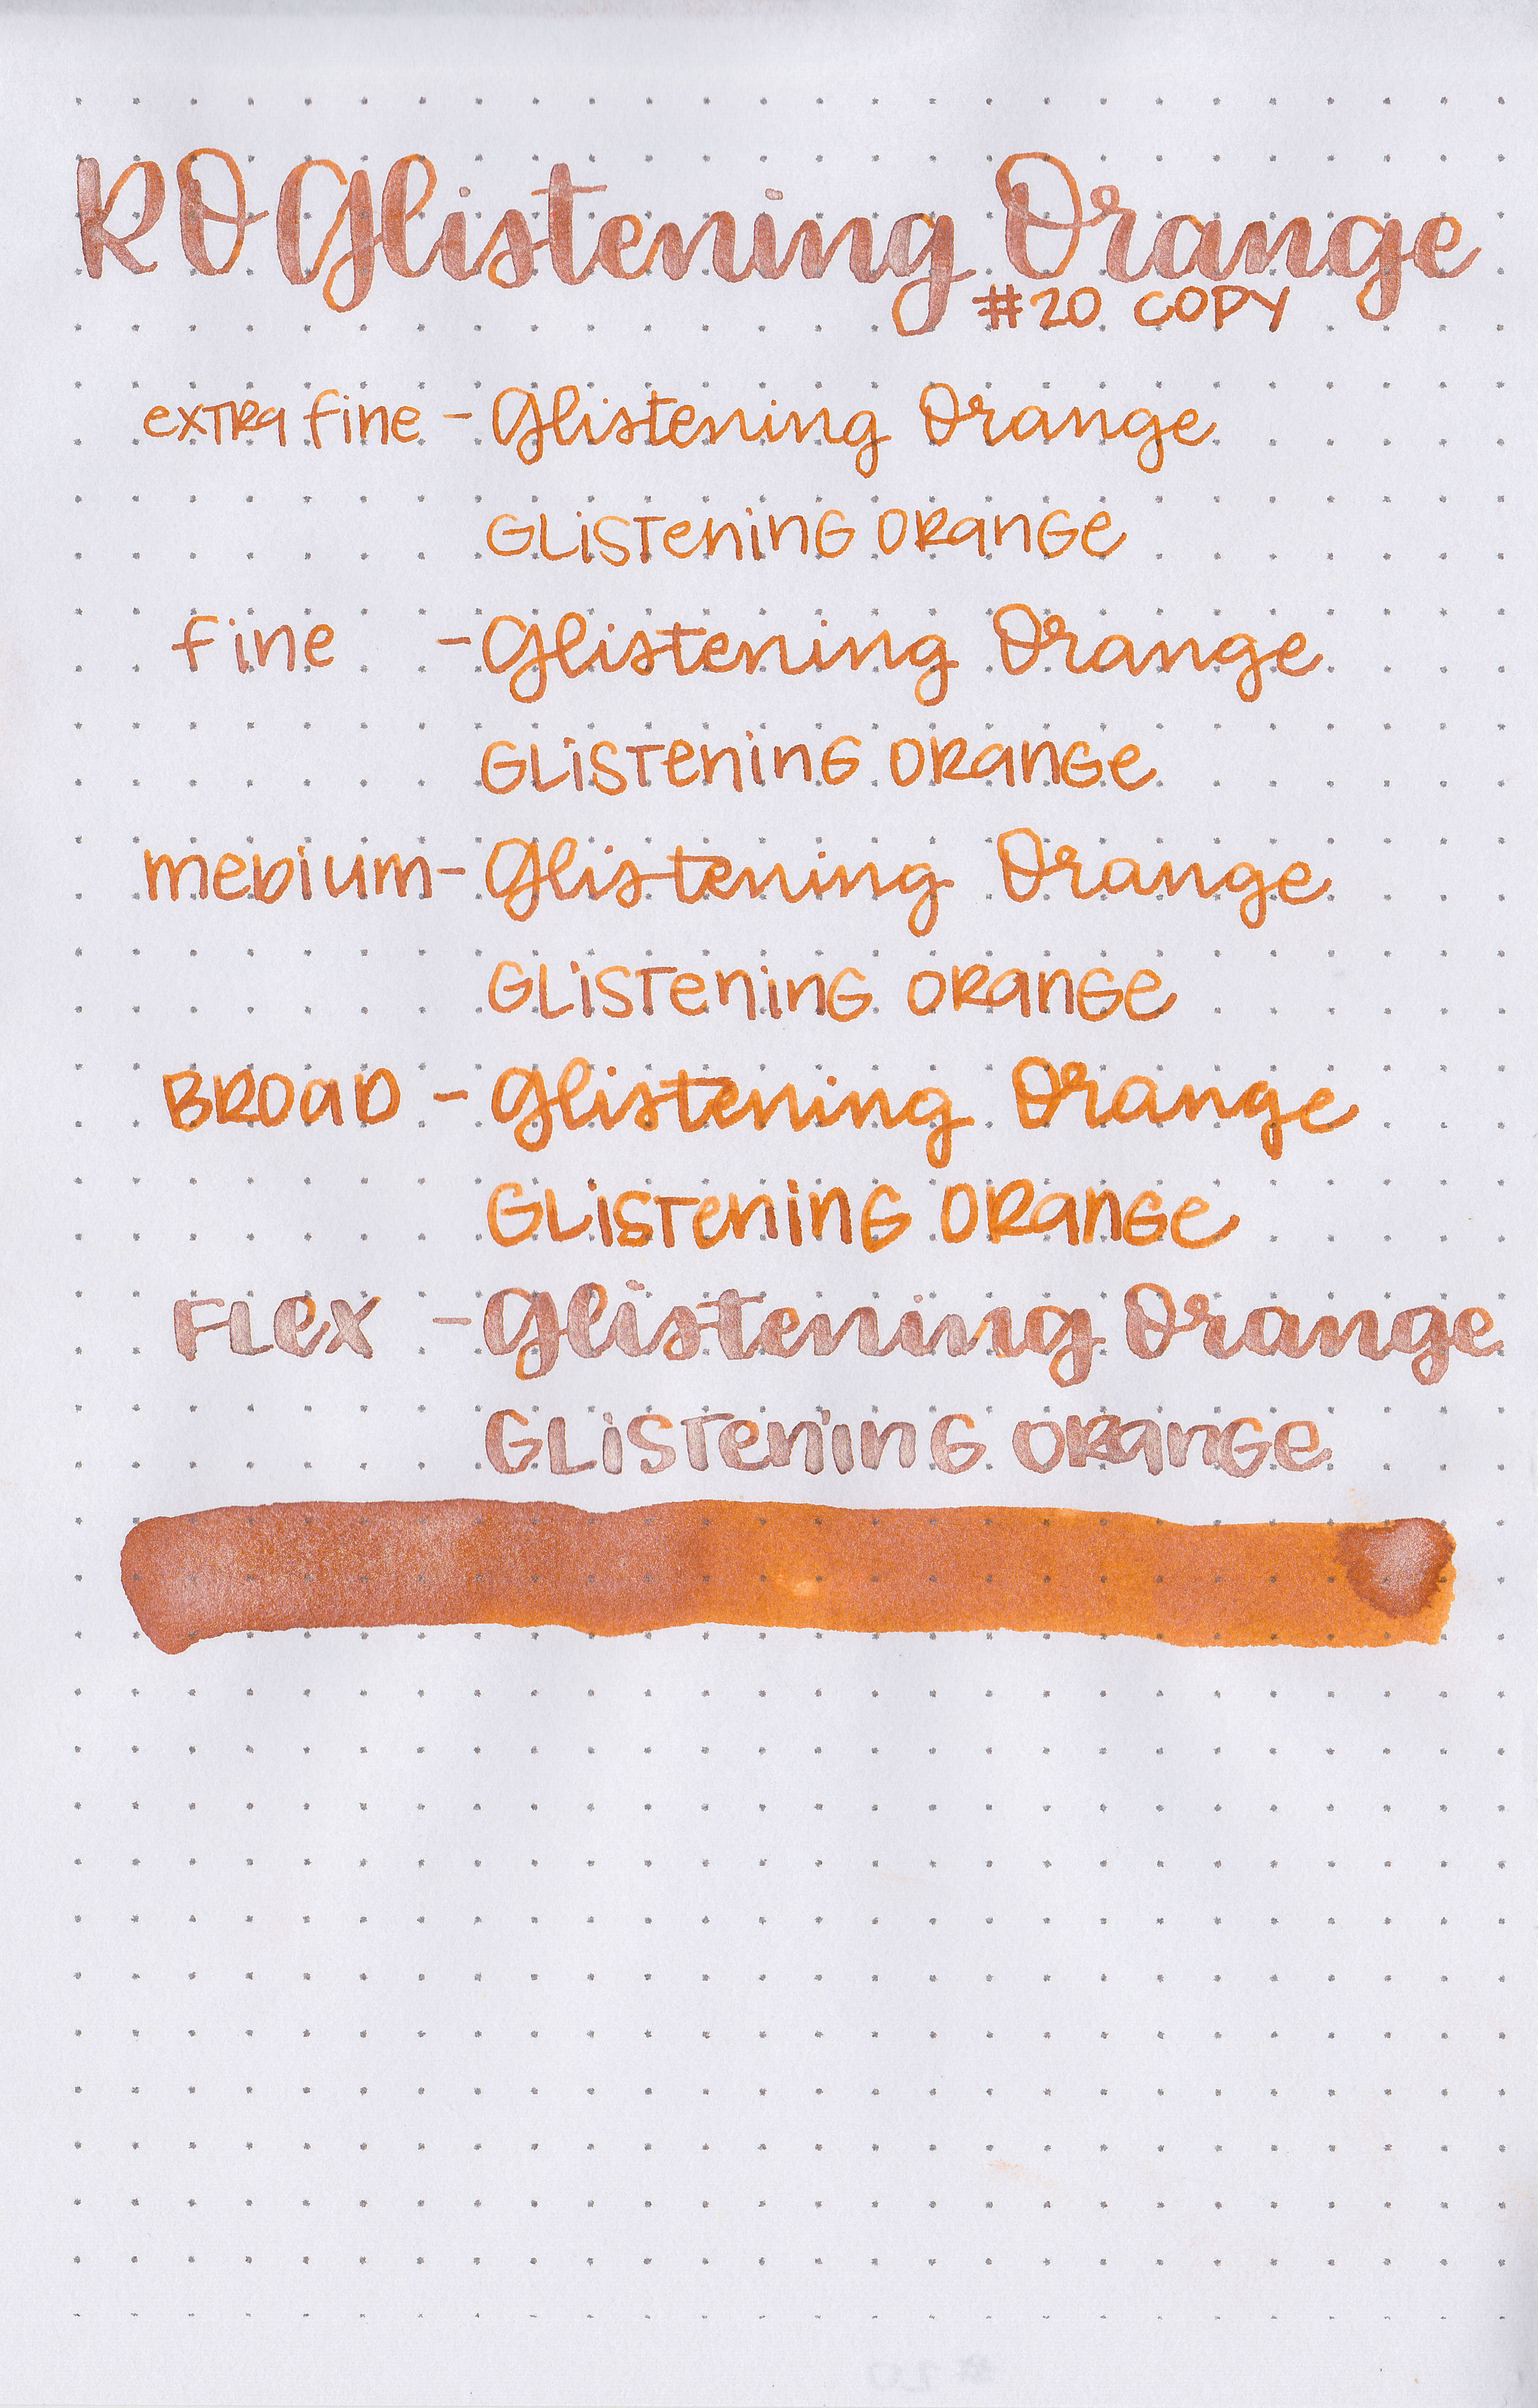 RO Glistening Orange
#20 COPY
exTRa fine - Glistening Orange
GLiSTeninG ORanGe
fine - Glistening Orange
GLiSTeninG ORanGe
meDium - Glistening Orange
GLiSTeninG ORanGe
BROaD - Glistening Orange
GLiSTeninG ORanGe
FLex - Glistening Orange
GLiSTeninG ORanGe